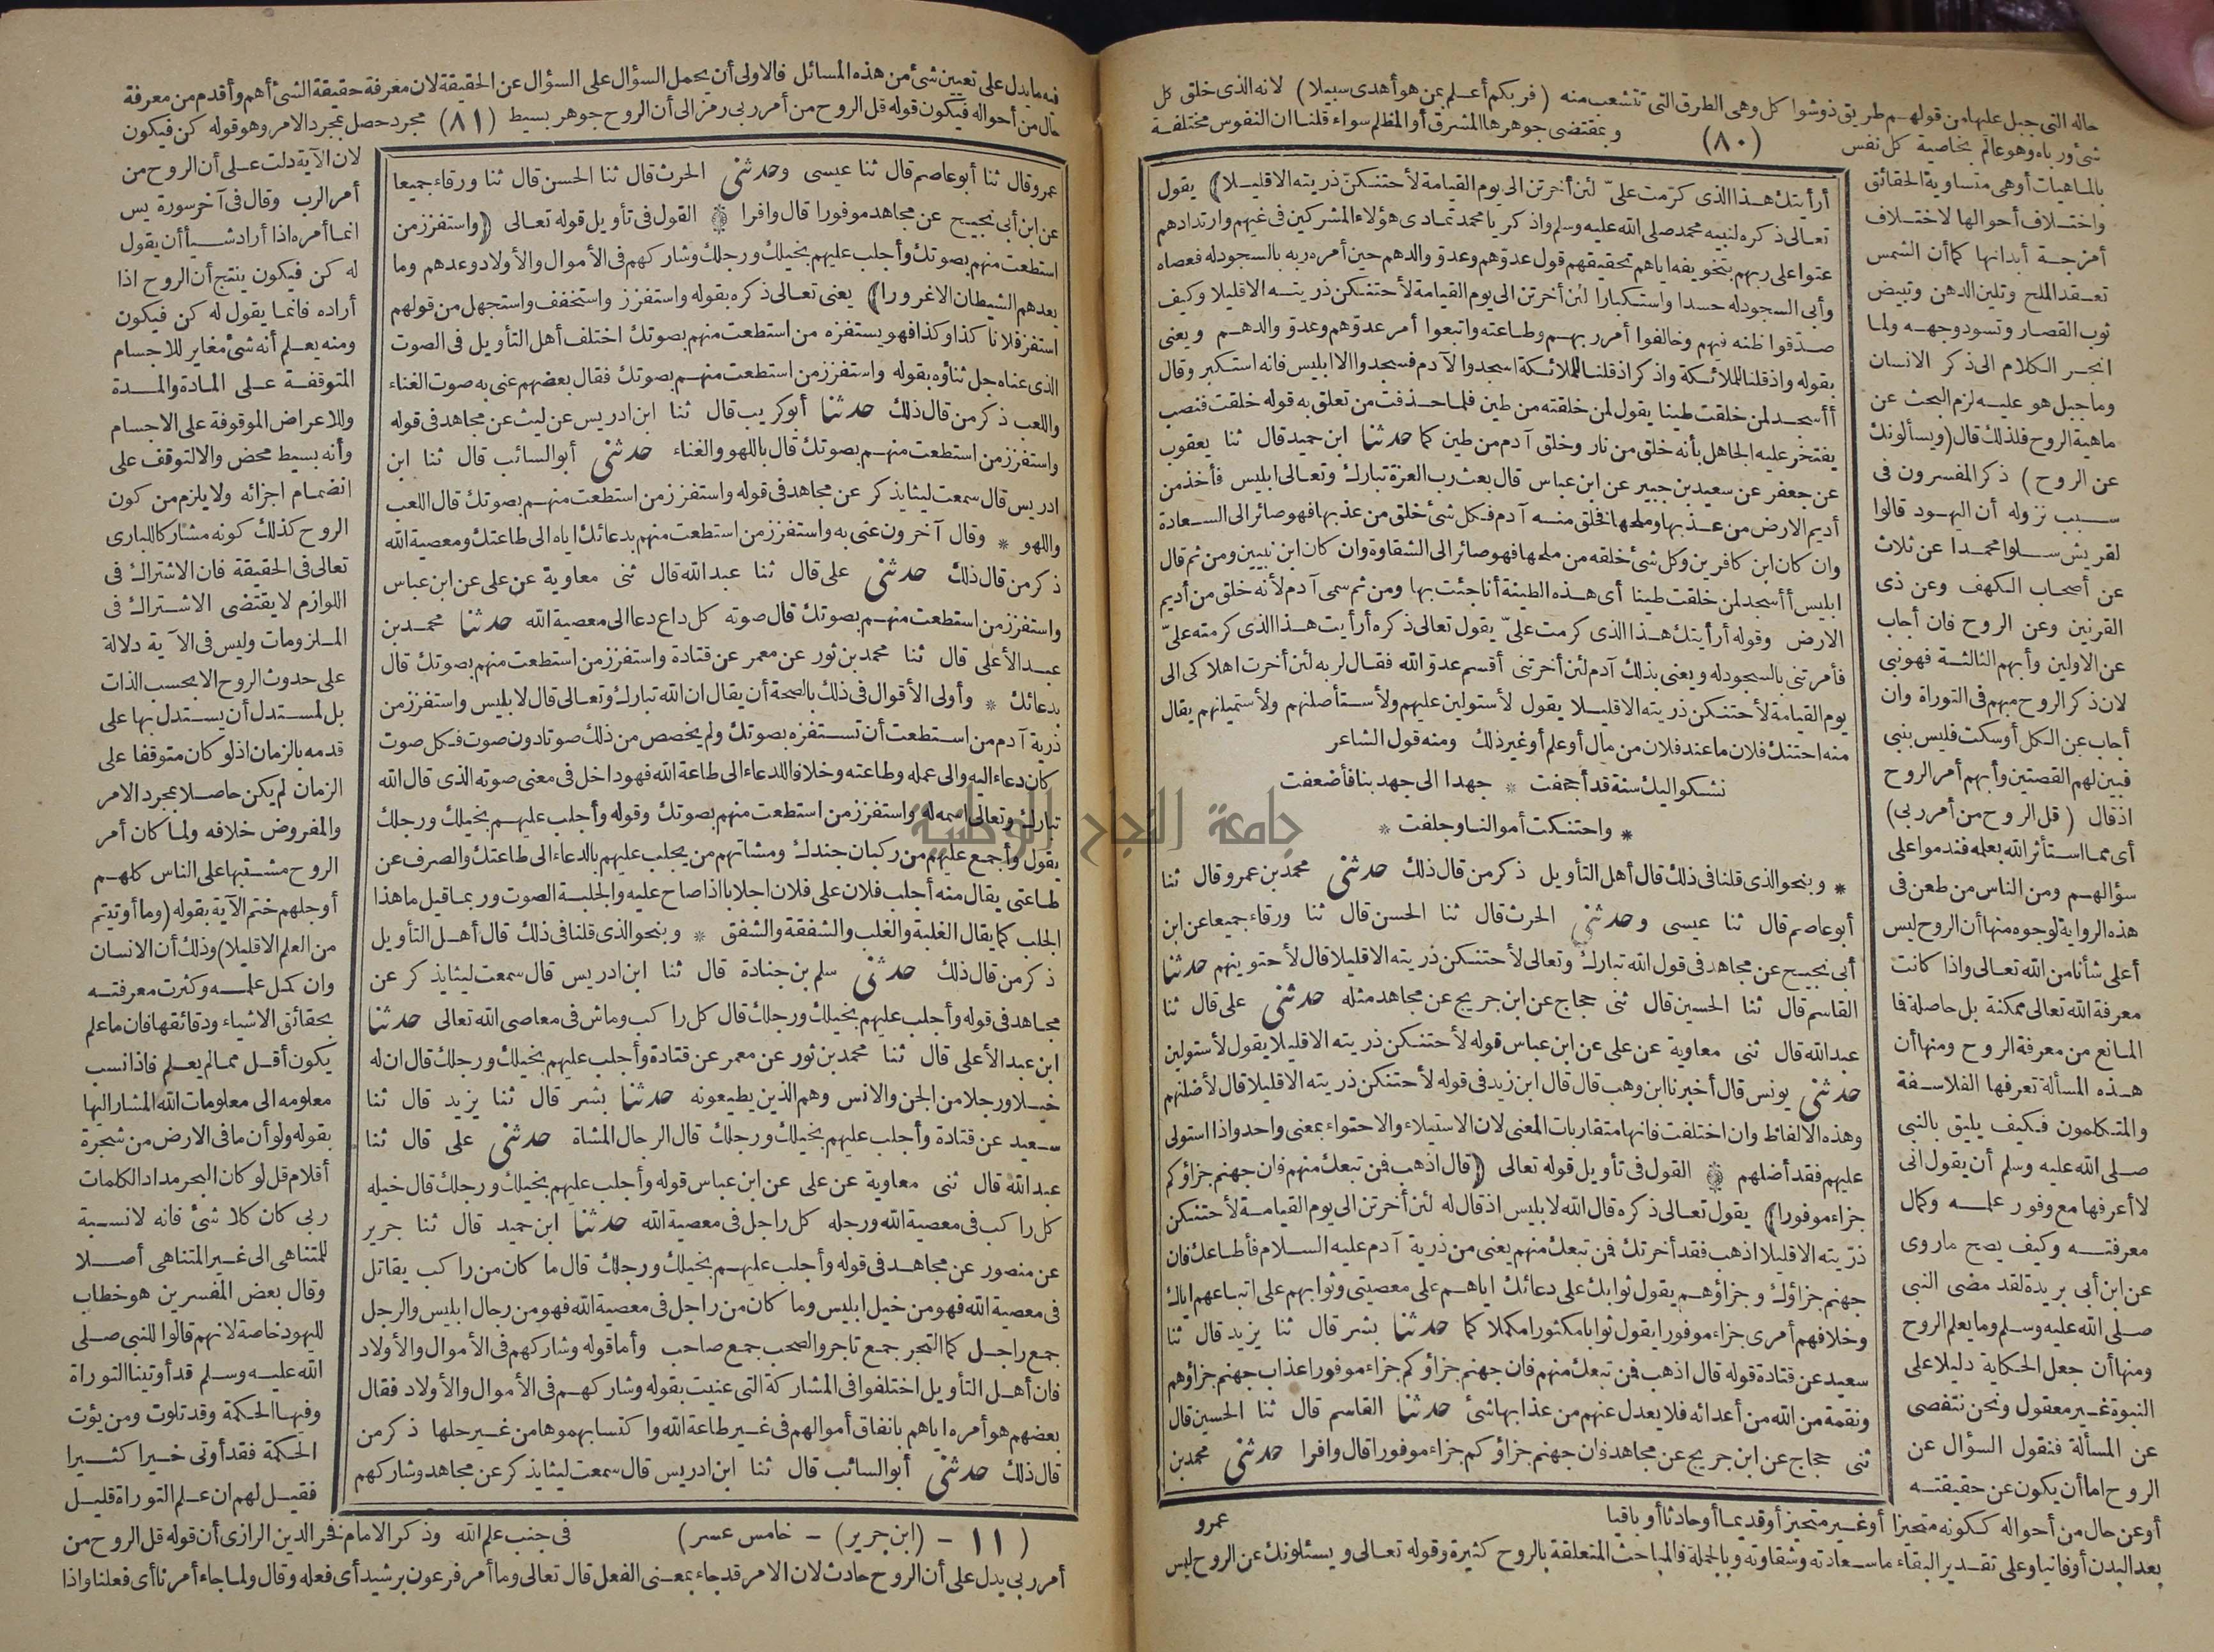 حاله التى جبل عليها من قولهم طريق ذو شواكل وهى الطرق التى تتشعب منه (فربكم أعلم بمن هو أهدى سبيلا) لانه الذى خلق كل
شئ ورباه وهو عالم بخاصية كل نفس (٨٠) وبمقتضى جوهرها المشرق أو المظلم سواء قلنا ان النفوس مختلفة
بالماهيات أو هى متساوية الحقائق
واختلاف أحوالها لاختلاف
أمزجة أبدانها كما أن الشمس
تعقد الملح وتلين الدهن وتبيض
ثوب القصار وتسود وجهه ولما
انجر الكلام الى ذكر الانسان
وما جبل هو عليه لزم البحث عن
ماهية الروح فلذلك قال (ويسألونك
عن الروح) ذكر المفسرون فى
سبب نزوله أن اليهود قالوا
لقريش سلوا محمدا عن ثلاث
عن أصحاب الكهف وعن ذى
القرنين وعن الروح فان أجاب
عن الاولين وأبهم الثالثة فهو نبى
لان ذكر الروح مبهم فى التوراة وان
أجاب عن الكل أو سكت فليس بنبى
فبين لهم القصتين وأبهم أمر الروح
اذ قال (قل الروح من أمر ربى)
أى مما استأثر الله بعلمه فندموا على
سؤالهم ومن الناس من طعن فى
هذه الرواية لوجوه منها أن الروح ليس
أعلى شأنا من الله تعالى واذا كانت
معرفة الله تعالى ممكنة بل حاصلة فما
المانع من معرفة الروح ومنها أن
هذه المسألة تعرفها الفلاسفة
والمتكلمون فكيف يليق بالنبى
صلى الله عليه وسلم أن يقول انى
لا أعرفها مع وفور علمه وكمال
معرفته وكيف يصح ما روى
عن ابن أبى بريدة لقد مضى النبى
صلى الله عليه وسلم وما يعلم الروح
ومنها أن جعل الحكاية دليلا على
النبوة غير معقول ونحن نتفصى
عن المسألة فنقول السؤال عن
الروح اما أن يكون عن حقيقته
أرأيتك هذا الذى كرمت علىّ لئن أخرتن الى يوم القيامة لأحتنكنّ ذريته الا قليلا) يقول
تعالى ذكره لنبيه محمد صلى الله عليه وسلم واذكر يا محمد تمادى هؤلاء المشركين فى غيهم وارتدادهم
عتوا على ربهم بتخويفه اياهم تحقيقهم قول عدوّهم وعدوّ والدهم حين أمره ربه بالسجود له فعصاه
وأبى السجود له حسدا واستكبارا لئن أخرتن الى يوم القيامة لأحتنكن ذريته الا قليلا وكيف
صدّقوا ظنه فيهم وخالفوا أمر ربهم وطاعته واتبعوا أمر عدوّهم وعدوّ والدهم ويعنى
بقوله واذ قلنا للملائكة واذكر اذ قلنا للملائكة اسجدوا لآدم فسجدوا الا ابليس فانه استكبر وقال
أأسجد لمن خلقت طينا يقول لمن خلقته من طين فلما حذفت من تعلق به قوله خلقت فنصب
يفتخر عليه الجاهل بأنه خلق من نار وخلق آدم من طين كما حدثنا ابن حميد قال ثنا يعقوب
عن جعفر عن سعيد بن جبير عن ابن عباس قال بعث رب العزة تبارك وتعالى ابليس فأخذ من
أديم الارض من عذبها وملحها فخلق منه آدم فكل شئ خلق من عذبها فهو صائر الى السعادة
وان كان ابن كافرين وكل شئ خلقه من ملحها فهو صائر الى الشقاوة وان كان ابن نبيين ومن ثم قال
ابليس أأسجد لمن خلقت طينا أى هذه الطينة أنا جئت بها ومن ثم سمى آدم لأنه خلق من أديم
الارض وقوله أرأيتك هذا الذى كرمت علىّ يقول تعالى ذكره أرأيت هذا الذى كرمته علىّ
فأمرتنى بالسجود له ويعنى بذلك آدم لئن أخرتنى أقسم عدوّ الله فقال لربه لئن أخرت اهلاكى الى
يوم القيامة لأحتنكن ذريته الا قليلا يقول لأستولين عليهم ولأستأصلنهم ولأستميلنهم يقال
منه احتنك فلان ما عند فلان من مال أو علم أو غير ذلك ومنه قول الشاعر
نشكو اليك سنة قد أجحفت * جهدا الى جهد بنا فأضعفت
* واحتنكت أموالنا وجلفت *
* وبنحو الذى قلنا فى ذلك قال أهل التأويل ذكر من قال ذلك حدثنى محمد بن عمرو قال ثنا
أبو عاصم قال ثنا عيسى وحدثنى الحرث قال ثنا الحسن قال ثنا ورقاء جميعا عن ابن
أبى نجيح عن مجاهد فى قول الله تبارك وتعالى لأحتنكن ذريته الا قليلا قال لأحتوينهم حدثنا
القاسم قال ثنا الحسين قال ثنى حجاج عن ابن جريج عن مجاهد مثله حدثنى على قال ثنا
عبد الله قال ثنى معاوية عن على عن ابن عباس قوله لأحتنكن ذريته الا قليلا يقول لأستولين
حدثنى يونس قال أخبرنا ابن وهب قال قال ابن زيد فى قوله لأحتنكن ذريته الا قليلا قال لأضلنهم
وهذه الالفاظ وان اختلفت فانها متقاربات المعنى لان الاستيلاء والاحتواء بمعنى واحد واذا استولى
عليهم فقد أضلهم القول فى تأويل قوله تعالى (قال اذهب فمن تبعك منهم فان جهنم جزاؤكم
جزاء موفورا) يقول تعالى ذكره قال الله لابليس اذ قال له لئن أخرتن الى يوم القيامة لأحتنكن
ذريته الا قليلا اذهب فقد أخرتك فمن تبعك منهم يعنى من ذرية آدم عليه السلام فأطاعك فان
جهنم جزاؤك وجزاؤهم يقول ثوابك على دعائك اياهم على معصيتى وثوابهم على اتباعهم اياك
وخلافهم أمرى جزاء موفورا يقول ثوابا مكثورا مكملا كما حدثنا بشر قال ثنا يزيد قال ثنا
سعيد عن قتادة قوله قال اذهب فمن تبعك منهم فان جهنم جزاؤكم جزاء موفورا عذاب جهنم جزاؤهم
ونقمة من الله من أعدائه فلا يعدل عنهم من عذابها شئ حدثنا القاسم قال ثنا الحسين قال
ثنى حجاج عن ابن جريج عن مجاهد فان جهنم جزاؤكم جزاء موفورا قال وافرا حدثنى محمد بن
عمرو
أو عن حال من أحواله ككونه متحيزا أو غير متحيز أو قديما أو حادثا أو باقيا
بعد البدن أو فانيا وعلى تقدير البقاء ما سعادته وشقاوته وبالجملة فالمباحث المتعلقة بالروح كثيرة وقوله تعالى ويسئلونك عن الروح ليس
فيه ما يدل على تعيين شئ من هذه المسائل فالاولى أن يحمل السؤال على السؤال عن الحقيقة لان معرفة حقيقة الشئ أهم وأقدم من معرفة
حال من أحواله فيكون قوله قل الروح من أمر ربى رمز الى أن الروح جوهر بسيط (٨١) مجرد حصل بمجرد الامر وهو قوله كن فيكون
عمرو قال ثنا أبو عاصم قال ثنا عيسى وحدثنى الحرث قال ثنا الحسن قال ثنا ورقاء جميعا
عن ابن أبى نجيح عن مجاهد موفورا قال وافرا القول فى تأويل قوله تعالى (واستفزز من
استطعت منهم بصوتك وأجلب عليهم بخيلك ورجلك وشاركهم فى الأموال والأولاد وعدهم وما
يعدهم الشيطان الا غرورا) يعنى تعالى ذكره بقوله واستفزز واستخفف واستجهل من قولهم
استفز فلانا كذا وكذا فهو يستفزه من استطعت منهم بصوتك اختلف أهل التأويل فى الصوت
الذى عناه جل ثناؤه بقوله واستفزز من استطعت منهم بصوتك فقال بعضهم عنى به صوت الغناء
واللعب ذكر من قال ذلك حدثنا أبو كريب قال ثنا ابن ادريس عن ليث عن مجاهد فى قوله
واستفزز من استطعت منهم بصوتك قال باللهو والغناء حدثنى أبو السائب قال ثنا ابن
ادريس قال سمعت ليثا يذكر عن مجاهد فى قوله واستفزز من استطعت منهم بصوتك قال اللعب
واللهو * وقال آخرون عنى به واستفزز من استطعت منهم بدعائك اياه الى طاعتك ومعصية الله
ذكر من قال ذلك حدثنى على قال ثنا عبد الله قال ثنى معاوية عن على عن ابن عباس
واستفزز من استطعت منهم بصوتك قال صوته كل داع دعا الى معصية الله حدثنا محمد بن
عبد الأعلى قال ثنا محمد بن ثور عن معمر عن قتادة واستفزز من استطعت منهم بصوتك قال
بدعائك * وأولى الأقوال فى ذلك بالصحة أن يقال ان الله تبارك وتعالى قال لابليس واستفزز من
ذرية آدم من استطعت أن تستفزه بصوتك ولم يخصص من ذلك صوتا دون صوت فكل صوت
كان دعاء اليه والى عمله وطاعته وخلافا للدعاء الى طاعة الله فهو داخل فى معنى صوته الذى قال الله
تبارك وتعالى اسمه له واستفزز من استطعت منهم بصوتك وقوله وأجلب عليهم بخيلك ورجلك
يقول وأجمع عليهم من ركبان جندك ومشاتهم من يجلب عليهم بالدعاء الى طاعتك والصرف عن
طاعتى يقال منه أجلب فلان على فلان اجلابا اذا صاح عليه والجلبة الصوت وربما قيل ما هذا
الجلب كما يقال الغلبة والغلب والشفقة والشفق * وبنحو الذى قلنا فى ذلك قال أهل التأويل
ذكر من قال ذلك حدثنى سلم بن جنادة قال ثنا ابن ادريس قال سمعت ليثا يذكر عن
مجاهد فى قوله وأجلب عليهم بخيلك ورجلك قال كل راكب وماش فى معاصى الله تعالى حدثنا
ابن عبد الأعلى قال ثنا محمد بن ثور عن معمر عن قتادة وأجلب عليهم بخيلك ورجلك قال ان له
خيلا ورجلا من الجن والانس وهم الذين يطيعونه حدثنا بشر قال ثنا يزيد قال ثنا
سعيد عن قتادة وأجلب عليهم بخيلك ورجلك قال الرجال المشاة حدثنى على قال ثنا
عبد الله قال ثنى معاوية عن على عن ابن عباس قوله وأجلب عليهم بخيلك ورجلك قال خيله
كل راكب فى معصية الله ورجله كل راجل فى معصية الله حدثنا ابن حميد قال ثنا جرير
عن منصور عن مجاهد فى قوله وأجلب عليهم بخيلك ورجلك قال ما كان من راكب يقاتل
فى معصية الله فهو من خيل ابليس وما كان من راجل فى معصية الله فهو من رجال ابليس والرجل
جمع راجل كما التجر جمع تاجر والصحب جمع صاحب وأما قوله وشاركهم فى الأموال والأولاد
فان أهل التأويل اختلفوا فى المشاركة التى عنيت بقوله وشاركهم فى الأموال والأولاد فقال
بعضهم هو أمره اياهم بانفاق أموالهم فى غير طاعة الله واكتسابهموها من غير حلها ذكر من
قال ذلك حدثنى أبو السائب قال ثنا ابن ادريس قال سمعت ليثا يذكر عن مجاهد وشاركهم
لان الآية دلت على أن الروح من
أمر الرب وقال فى آخر سورة يس
انما أمره اذا أراد شيأ أن يقول
له كن فيكون ينتج أن الروح اذا
أراده فانما يقول له كن فيكون
ومنه يعلم أنه شئ مغاير للاجسام
المتوقفة على المادة والمدة
وللاعراض الموقوفة على الاجسام
وأنه بسيط محض والا لتوقف على
انضمام اجزائه ولا يلزم من كون
الروح كذلك كونه مشاركا للبارى
تعالى فى الحقيقة فان الاشتراك فى
اللوازم لا يقتضى الاشتراك فى
الملزومات وليس فى الآية دلالة
على حدوث الروح الا بحسب الذات
بل لمستدل أن يستدل بها على
قدمه بالزمان اذ لو كان متوقفا على
الزمان لم يكن حاصلا بمجرد الامر
والمفروض خلافه ولما كان أمر
الروح مشتبها على الناس كلهم
أو جلهم ختم الآية بقوله (وما أوتيتم
من العلم الا قليلا) وذلك أن الانسان
وان كمل علمه وكثرت معرفته
بحقائق الاشياء ودقائقها فان ما علم
يكون أقل مما لم يعلم فاذا نسب
معلومه الى معلومات الله المشار اليها
بقوله ولو أن ما فى الارض من شجرة
أقلام قل لو كان البحر مدادا لكلمات
ربى كان كلا شئ فانه لا نسبة
للمتناهى الى غير المتناهى أصلا
وقال بعض المفسرين هو خطاب
لليهود خاصة لانهم قالوا للنبى صلى
الله عليه وسلم قد أوتينا التوراة
وفيها الحكمة وقد تلوت ومن يؤت
الحكمة فقد أوتى خيرا كثيرا
فقيل لهم ان علم التوراة قليل
(١١ - (ابن جرير) - خامس عشر) فى جنب علم الله وذكر الامام فخر الدين الرازى أن قوله قل الروح من
أمر ربى يدل على أن الروح حادث لان الامر قد جاء بمعنى الفعل قال تعالى وما أمر فرعون برشيد أى فعله وقال ولما جاء أمرنا أى فعلنا واذا
جامعة النجاح الوطنية